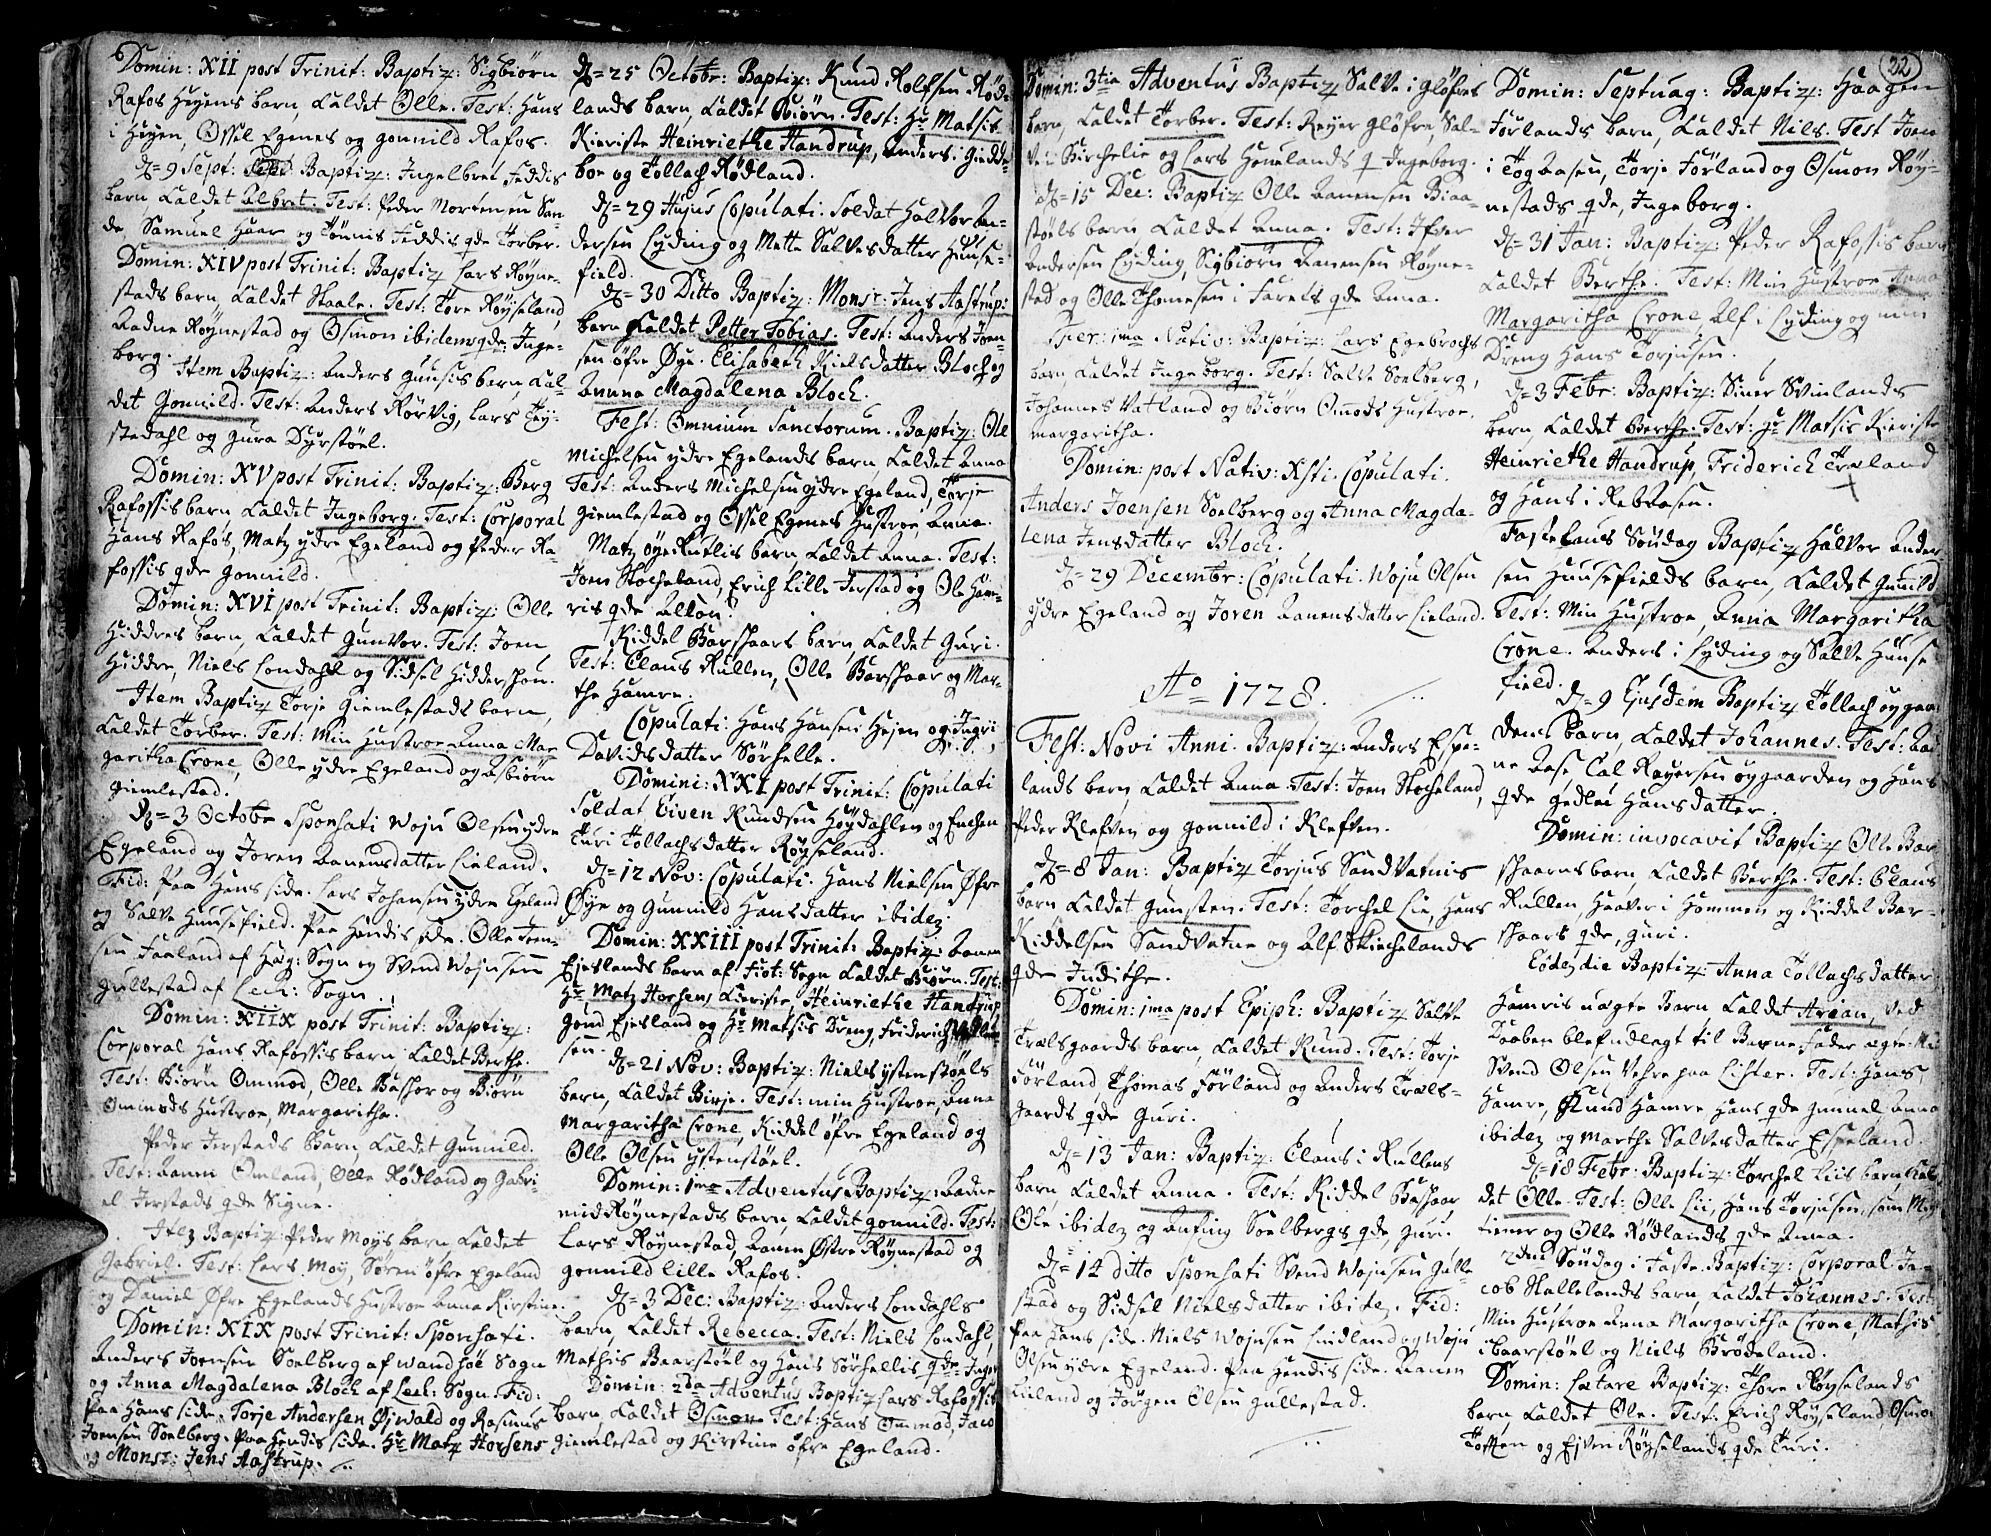 Domin: XII post Trinit: Baptiz: Sigbiørn
Rafos Heyens barn, Caldet Olle. Test: Hans
i Heyen, Ossel Egenes og gonnild Rafos.
D= 9 Sept: Baptiz: Ingelbret Feddis
barn Caldet Albret. Test: Peder Mortensen San-
de, Samuel Haar og Tønnis Feddis qde Torber.
Domin: XIV post Trinit: Baptiz Lars Røyne-
stads barn, Caldet Staale. Test: Tore Røyseland,
Aadne Røynestad og Osmon ibidem qde Inge-
borg. Item Baptiz: Anders gunsis barn Cal-
det Gonnild. Test: Anders Rørvig, Lars Tey-
stedahl og Gura Dyrstøel.
Domin: XV post Trinit: Baptiz: Berg
Rafossis barn Caldet Ingeborg. Test: Corporal
Hans Rafos, Matz ydre Egeland og Peder Ra-
fossis qde gonnild.
Domin: XVI post Trinit: Baptiz: Olle
Hiddres barn, Caldet Gunvor. Test: Joen
Hiddre, Niels Londahl og Sidsel Hidderskou.
Item Baptiz Torje Giemlestads barn,
Caldet Torber. Test: Min Hustroe Anna Mar
garitha Crone, Olle ydre Egeland og Asbiørn
giemlestad.
D= 3 Octobr Sponsati Woju Olsen ydre
Egeland og Joren Aanensdatter Lieland.
Fid: paa Hans side. Lars Johansen ydre Egeland
og Salve Huusefield. Paa Hendis side. Olle Jen-
sen Faaland af Hæg: Sogn og Svend Wojusen
gullestad af Lech: Sogn.
Domin: XIIX post Trinit: Baptiz:
Corporal Hans Rafossis barn Caldet Berthe.
Test: Biørn Ommod, Olle Basfor og Biørn
Ommods Hustroe, Margaritha.
Peder Jerstads Barn, Caldet Gunnild.
Test: Aanen Omland, Olle Rødland og Gabri-
el Jerstads qde Signe.
Baptiz Peder Moys barn, Caldet
Gabriel. Test: Lars Moy, Søren øfre Egeland
og Daniel Øfre Egelands Hustroe Anna Kirstine.
Domin: XIX post Trinit: Sponsati.
Anders Joensen Soelberg af wandsøe Sogn
og Anna Magdalena Bloch af Lech: Sogn. Fid:
Paa Hans side. Torje Andersen Øjwald og Rasmus
Joensen Soelberg. Paa Hendis side. Hr Matz Horsens
og Monsr: Jens Aastrup.
D= 25 Octobr: Baptiz: Knud Rolfsen Rød-
lands barn, Caldet Biørn. Test: Hr Matsis
Kieriste Heinriethe Handrup, Anders i Gidde
boe og Tollach Rødland.
D= 29 Hujus Copulati. Soldat Halvor An-
dersen Lyding og Mette Salvesdatter Huuse-
field.
D= 30 Ditto Baptiz: Monsr: Jens Aastrups
barn Caldet Petter Tobias. Test: Anders Joen-
sen øfre Øye. Elisabeth Nielsdatter Bloch og
Anna Magdalena Bloch.
Fest: Omnium Sanctorum. Baptiz: Ole
Michelsen ydre Egelands barn, Caldet Anna
Test: Anders Michelsen ydre Egeland, Torje
Giemlestad og Ossel Egenes Hustroe Anna.
Matz barn, Caldet Anna. Test:
Joen Stocheland, Erich Lille Jerstad og Ole Ham-
ris qde
Kiddel Barshaars barn, Caldet Guri.
Test: Claus Kullen, Olle Barshaar og Mar-
the Hamre.
Copulati: Hans Hansen Heyen og Ingri
Davidsdatter Sørhelle.
Domini: XXI post Trinit: Copulati
Soldat Eiven Knudsen Høydahlen og Enchen
Turi Tollachsdatter Røyseland.
D= 12 Nov: Copulati. Hans Nielsen Øfre
Øye og Gunnild Hansdatter ibidez.
Domin: XXIII post Trinit: Baptiz: Aanen
Ejeslands barn af Fiot: Sogn Caldet Biørn. Test:
Hr Matz Horsens Kieriste, Heinriethe Handrup
Goud Ejesland og Hr Matsis Dreng, Friderich
sen.
D= 21 Nov: Baptiz: Niels ystenstøels
barn, Caldet Birje. Test: min Hustroe, Anna
Margaritha Crone, Kiddel øfre Egeland og
Olle Olsen ystenstøel.
Domin: 1ma Adventus Baptiz: Aadne
mid Røynestads barn, Caldet gonnild. Test:
Lars Røynestad, Aanen Østre Røynestad og
gonnild lille Rafos.
D= 3 Dec: Baptiz: Anders Londahls
barn, Caldet Rebecca. Test: Niels Londahl,
Mathis Baarstøel og Hans Sørhellis qde Inger
Domin: 2da Adventus Baptiz Lars Rafossis
barn, Caldet Osmon Test: Hans Ommod, Jacob
Giemlestad og Kirstine øfre Egeland.
32
Domin: 3tia Adventus Baptiz Salve i Gløfres
barn, Caldet Torber. Test: Reyer Gløfre, Sal-
ve Birchelie og Lars Homlands q Ingeborg.
D= 15 Dec: Baptiz Olle Aanensen Biaa-
støels barn Caldet Anna. Test: Ifver
Andersen Lyding, Sigbiørn Aanensen Røyne-
stad og Olle Thomesen i Farets qde Anna.
Fer: 1ma Nativ: Baptiz: Lars Egebrochs
barn, Caldet Ingeborg. Test: Salve Soelberg,
Johannes Vatland og Biørn Omods Hustroe.
margaritha.
Domin: post Nativ: Xsti. Copulati.
Anders Joensen Soelberg og Anna Magda-
lena Jensdatter Bloch.
D= 29 Decembr: Copulati. Woju Olsen
ydre Egeland og Joren Aanensdatter Lieland.
Ao = 1728.
Fest: Novi Anni. Baptiz: Anders Espe-
lands barn Caldet Anna. Test: Joen Stocheland,
Peder Kleften og gonnild i Kleften.
D= 8 Jan: Baptiz Torjus Sandvatnis
barn Caldet Gunsten. Test: Torchel Lie, Hans
Kiddelsen Sandvatne og Alf Birchelands
qde Judithe.
Domin: 1ma post Epiph: Baptiz Salve
Trælsgaards barn, Caldet Knud. Test: Torje
Førland, Thomas Førland og Anders Træls-
gaards qde Guri.
D= 13 Jan: Baptiz: Claus i Kullens
barn, Caldet Anna. Test: Kiddel Basfaar,
Ole ibidez og Anfing Soelbergs qde, Guri.
D= 14 ditto Sponsati Svend Wojusen Gulle-
stad og Sidsel Nielsdatter ibidez. Fid:
Paa Hans side. Niels Wojusen Lindland og Woju
Olsen ydre Egeland. Paa Hendis side. Aanen
Lieland og Jørgen Olsen gullestad.
Domin: Septuag: Baptiz: Haagen
Førlands barn, Caldet Nils. Test Joen
i Togaasen, Torje Førland og Osmon Røy-
nestads qde, Ingeborg.
D= 31 Jan: Baptiz: Peder Rafossis barn
Caldet Berthe. Test: Min Hustroe Anna
Margaritha Crone, Alf i Lyding og min
Dreng Hans Torjusen.
D= 3 Febr: Baptiz: Siver Svinlands
barn, Caldet Berthe. Test: Hr Matsis Kieriste
Heinriethe Handrup, Friderich Træland
og Hans i Rebaasen.
Fastelaus Søndag Baptiz Halvor Ander
sen Huusefields barn, Caldet Gunnild
Test: Min Hustroe, Anna Margaritha
Crone. Anders i Lyding og Salve Huuse
field.
D= 9 Ejusdem Baptiz Tollach oygaar
dens barn, Caldet Johannes. Test: Aa-
ne Aase, Cal Rayersen oygaarden og Hans
qde Hansdatter.
Domin: invocavit Baptiz Olle Bar
shaars barn, Caldet Berthe. Test: Claus
Kullen, Haaver i Hommen og Kiddel Bar-
shaars qde, Guri.
Eodez die Baptiz: Anna Tollachsdatter
Hamris uægte Barn Caldet Arian, ved
Daaben blef udlagt til Barne fader
Svend Olsen Vehre paa Lister. Test: Hans
Hamre, Knud Hamre Hans qde Gunnel, Anna
ibidez og Marthe Salvesdatter Espeland.
D= 18 Febr: Baptiz: Torchel Liis barn Cal
det Olle. Test: Olle Lii, Hans Torjusen, som
tiener og Olle Rødlands qde Anna.
2den Søndag i Faste. Baptiz: Corporal Ja-
cob Stallelands barn, Caldet Johannes. Test:
Min Hustroe Anna Margaritha Crone, Mathis
i baarstøel og Niels Brødeland.
Domin: Lætare Baptiz: Thore Røyselands
barn Caldet Ole. Test: Erich Røyseland, Osmon
Toften og Ejven Røyselands qde Turi.